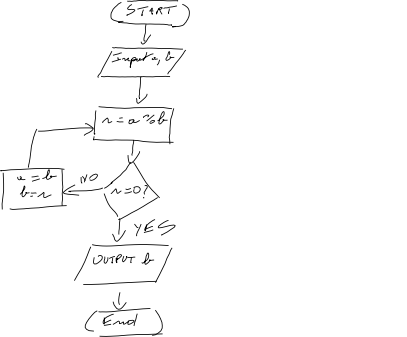 START
Input a, b
r = a % b
r=0?
NO
a = b
b = r
YES
OUTPUT b
End